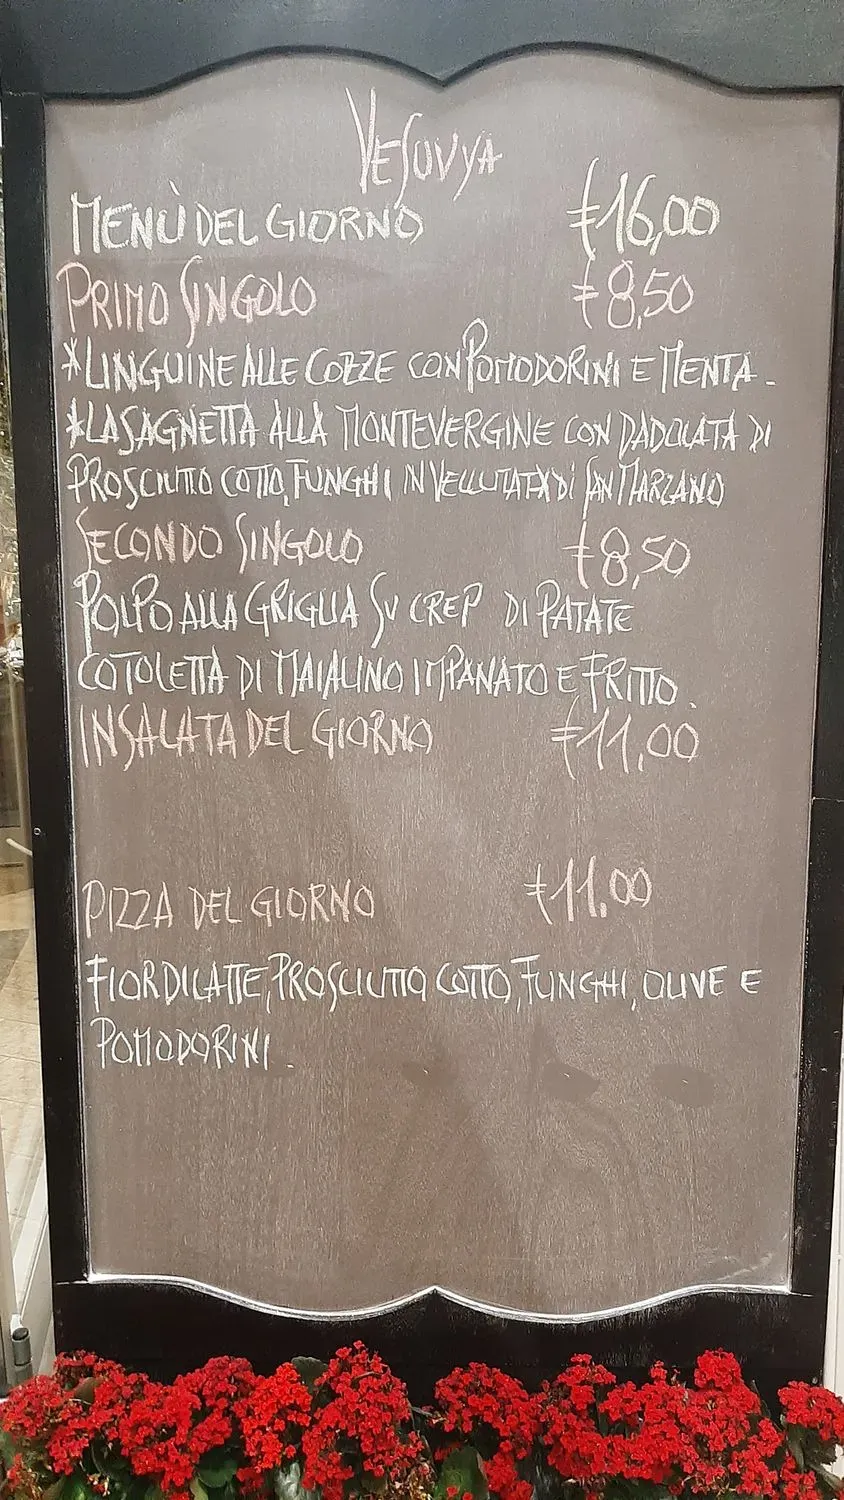 VESUVYA
MENÙ DEL GIORNO €16,00
PRIMO SINGOLO €8,50
*LINGUINE ALLE COZZE CON POMODORINI E MENTA.
*LASAGNETTA ALLA MONTEVERGINE CON DADOLATA DI
PROSCIUTTO COTTO, FUNGHI IN VELLUTATA DI SAN MARZANO
SECONDO SINGOLO €8,50
POLPO ALLA GRIGLIA SU CREP DI PATATE
COTOLETTA DI MAIALINO IMPANATO E FRITTO.
INSALATA DEL GIORNO €11,00
PIZZA DEL GIORNO €11,00
FIORDILATTE, PROSCIUTTO COTTO, FUNGHI, OLIVE E
POMODORINI.